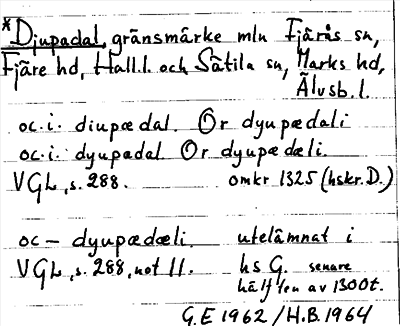 *Djupadal, gränsmärke mln Fjärås sn,
Fjäre hd, Hall.l. och Sätila sn, Marks hd,
Älvsb. l.
oc. i. diupædal. Or dyupædali
oc. i. dyupadal. Or dyupædæli.
VGL, s. 288. omkr 1325 (hskr. D.)
oc — dyupædæli. utelämnat i
VGL, s. 288, not 11. hs G. senare
hälften av 1300t.
G.E 1962 / H.B. 1964